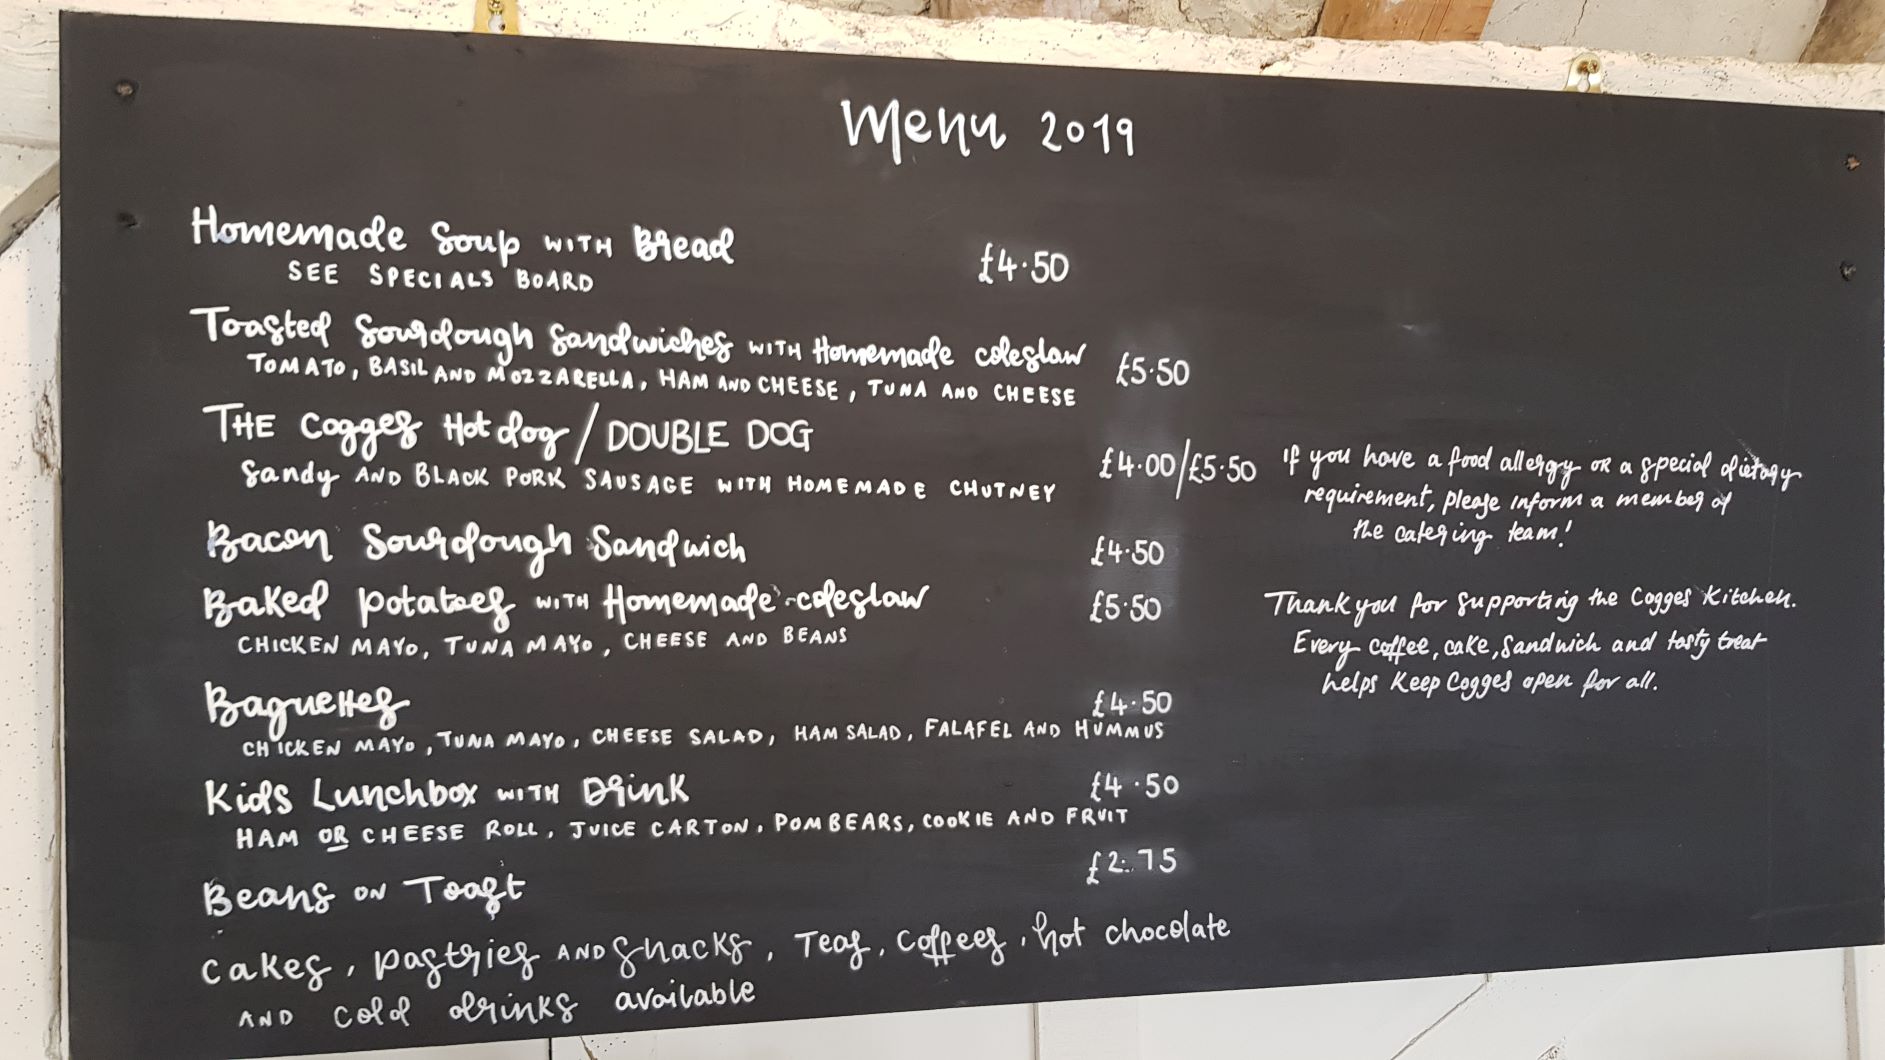 Menu 2019
Homemade Soup WITH Bread £4.50
SEE SPECIALS BOARD
Toasted Sourdough Sandwiches WITH Homemade coleslaw £5.50
TOMATO, BASIL AND MOZZARELLA, HAM AND CHEESE, TUNA AND CHEESE
THE Cogges Hot dog / DOUBLE DOG £4.00/£5.50
Sandy AND BLACK PORK SAUSAGE WITH HOMEMADE CHUTNEY
Bacon Sourdough Sandwich £4.50
Baked potatoes WITH Homemade coleslaw £5.50
CHICKEN MAYO, TUNA MAYO, CHEESE AND BEANS
Baguettes £4.50
CHICKEN MAYO, TUNA MAYO, CHEESE SALAD, HAM SALAD, FALAFEL AND HUMMUS
Kids Lunchbox WITH Drink £4.50
HAM OR CHEESE ROLL, JUICE CARTON, POMBEARS, COOKIE AND FRUIT
Beans ON Toast £2.75
Cakes, pastries AND Snacks, Teas, Coffees, hot chocolate
AND cold drinks available
If you have a food allergy or a special dietary
requirement, please inform a member of
the catering team!
Thank you for supporting the Cogges Kitchen.
Every coffee, cake, Sandwich and tasty treat
helps Keep Cogges open for all.